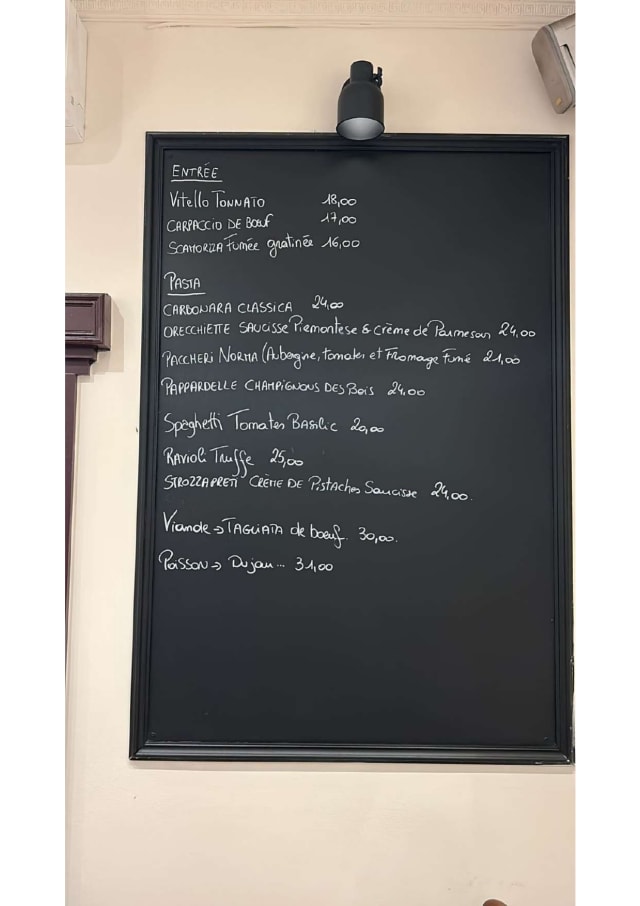 ENTRÉE
Vitello TONNATO 18,00
CARPACCIO DE Bœuf 17,00
SCAMORZA Fumée gratinée 16,00
PASTA
CARBONARA CLASSICA 24,00
ORECCHIETTE SAUCISSE Piemontese & Crème de Parmesan 24,00
PACCHERI NORMA (Aubergine, tomates et Fromage Fumé 21,00
PAPPARDELLE CHAMPIGNOUS DES Bois 24,00
Spaghetti Tomates BASilic 20,00
RAVioli Truffe 25,00
STROZZAPRETI CRÈME DE Pistaches Saucisse 24,00.
Viande → TAGLIATA de bœuf. 30,00.
Poisson → Du jour... 31,00